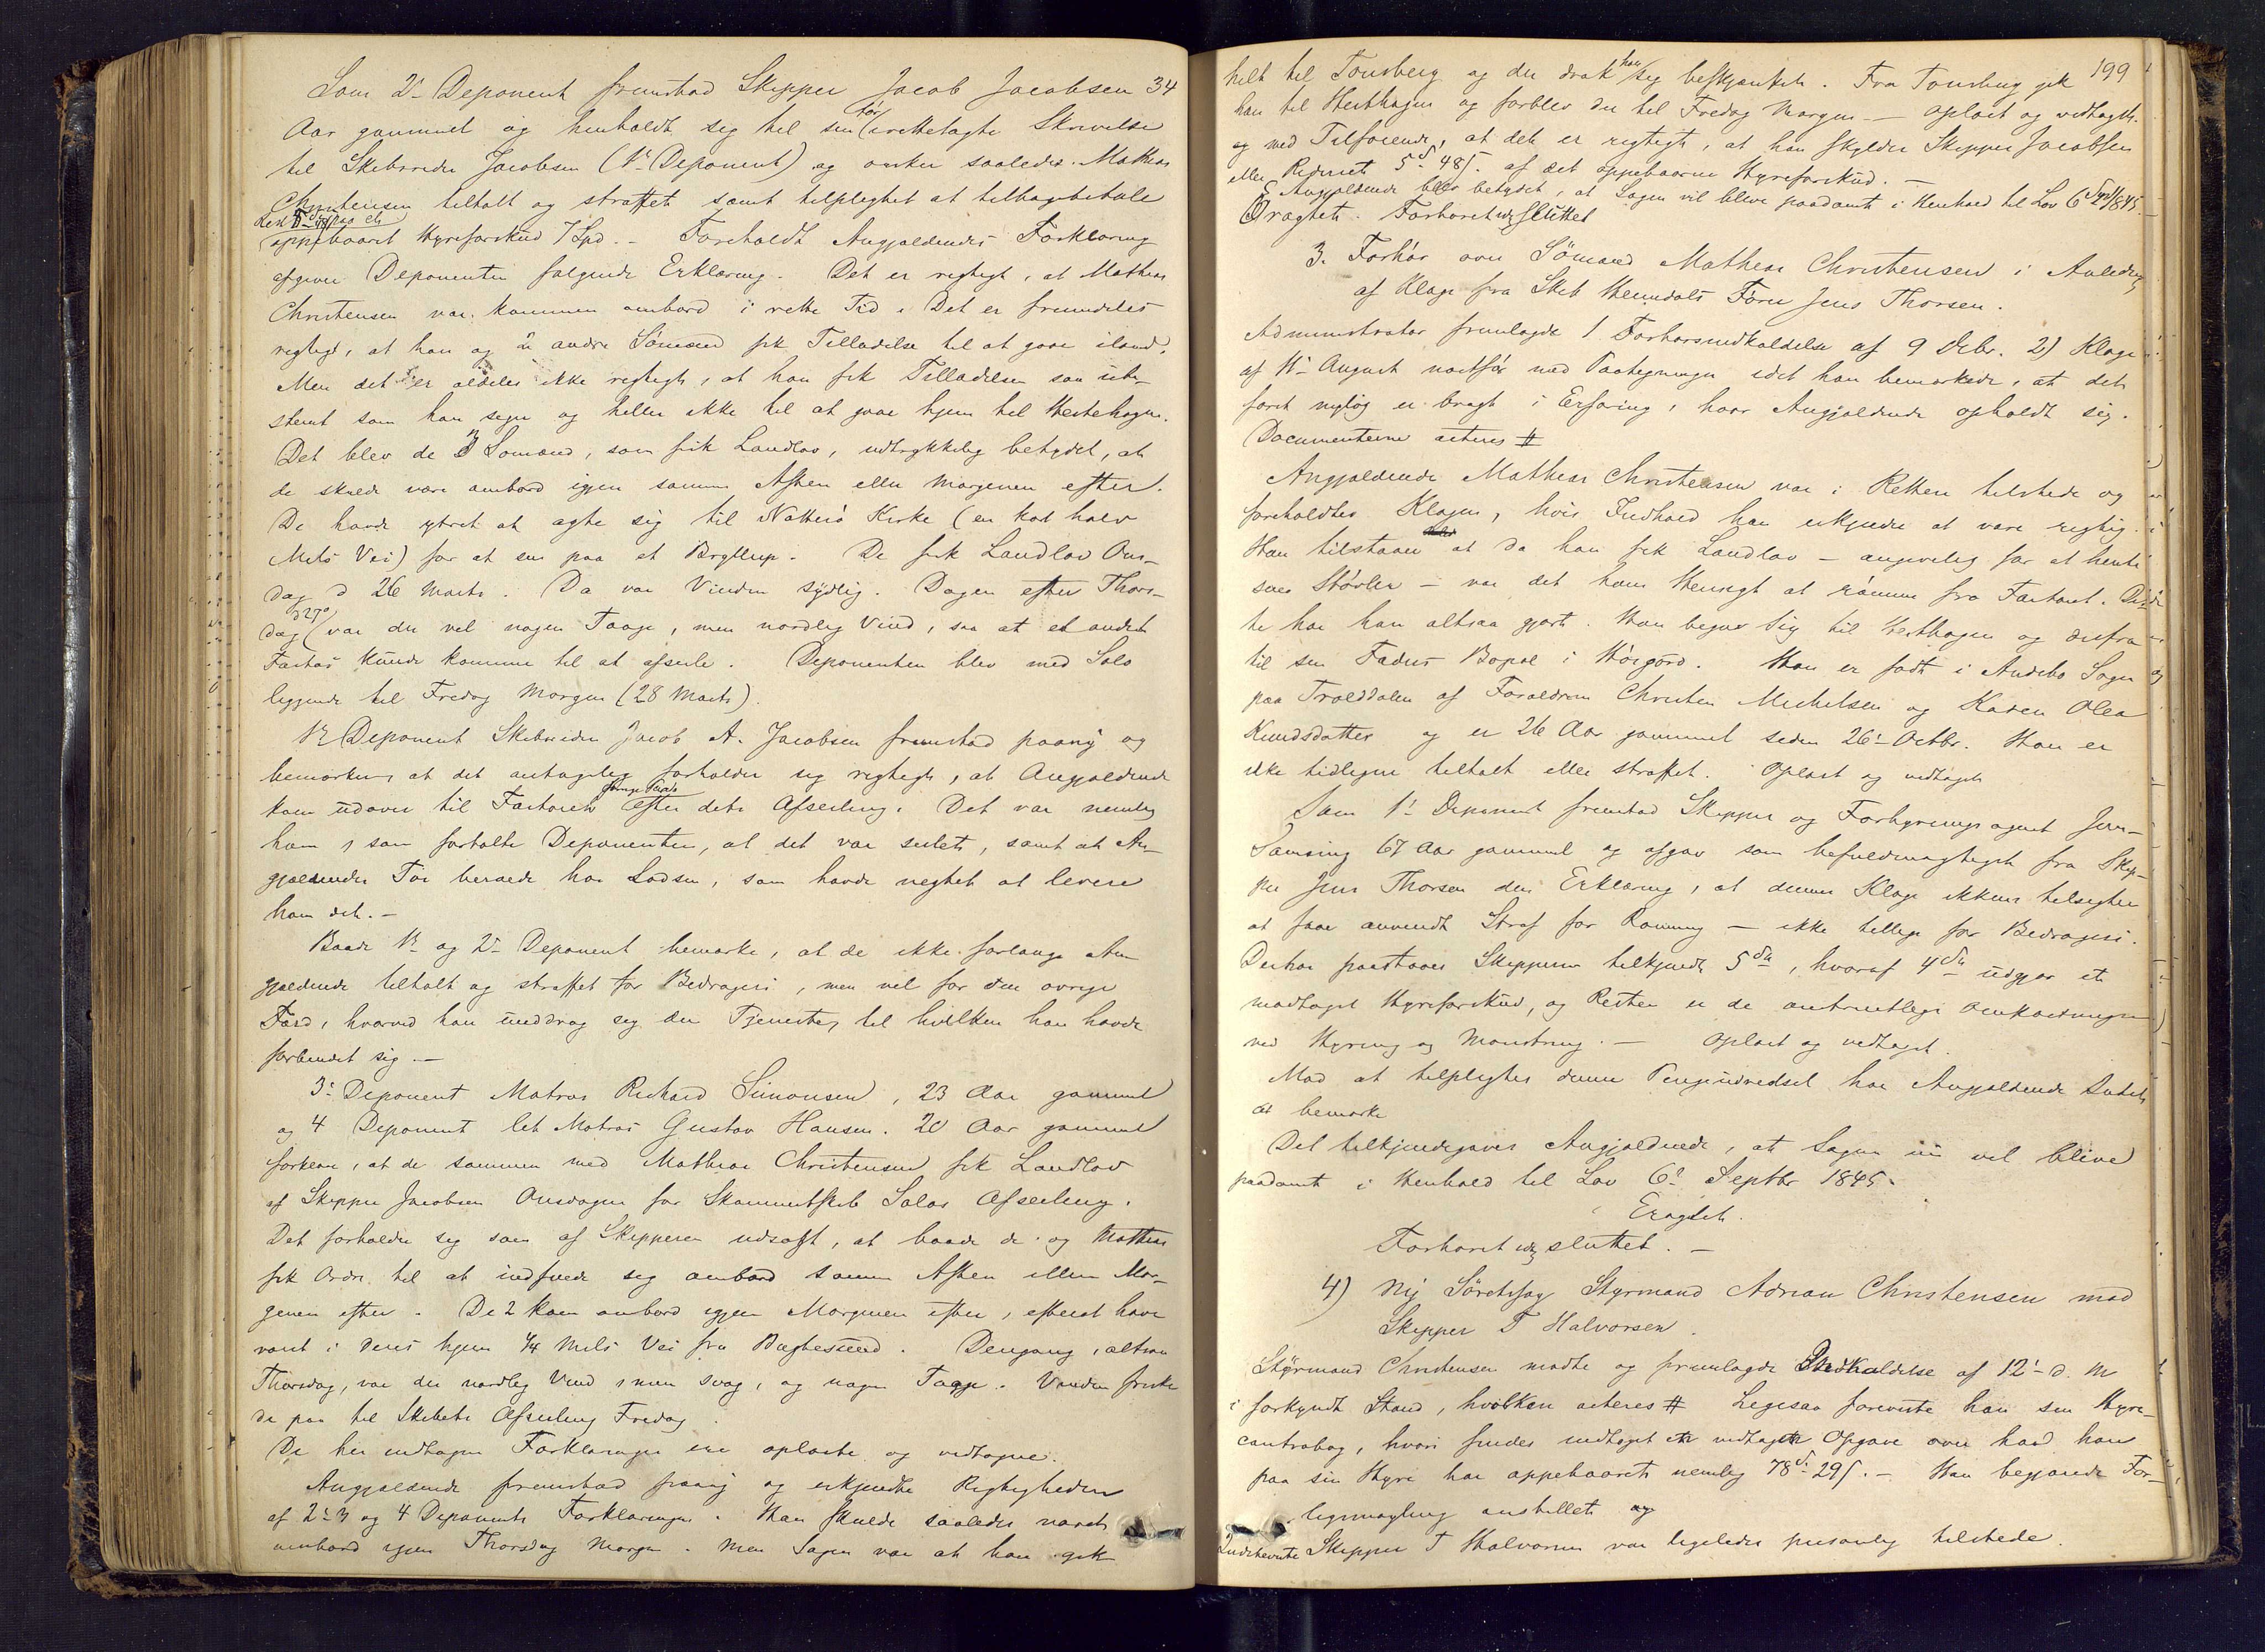 Som 2- Deponent fremstod Skipper Jacob Jacobsen 34
Aar gammel og henholdt sig til sin før irettelagte Skrivelse
til Skibsreder Jacobsen (1- Deponent) og ønsker saaledes Mathias
Christensen tiltalt og straffet samt tilpligtet at tilbagebetale
oppebaaret Hyreforskud 7 Spd. - Foreholdt Angjældendes Forklaring
afgiver Deponenten følgende Erklæring. Det er rigtigt, at Mathias
Christensen var kommen ombord i rette Tid. Det er fremdeles
rigtigt, at han og 2 andre Sømænd fik Tilladelse til at gaae iland,
Men det er aldeles ikke rigtigt, at han fik Tilladelsen saa ube-
stemt som han siger og heller ikke til at gaae hjem til Hestehagen.
Det blev de 3 Sømænd, som fik Landlov, udtrykkelig betydet, at
de skulde være ombord igjen samme Aften eller Morgenen efter.
De havde ytret at agte sig til Nøtterø Kirke (en kort halv
Miils Vei) for at see paa et Bryllup. De fik Landlov Ons-
dag d 26 Marts. Da var Vinden sydlig. Dagen efter Thors-
dag d 27de var der vel nogen Taage, men nordlig Vind, saa at et andet
Fartøi kunde komme til at afseile. Deponenten blev med Solo
liggende til Fredag Morgen (28 Marts).
1- Deponent Skibsreder Jacob A. Jacobsen fremstod paany og
bemærker, at det antagelig forholder sig rigtigt, at Angjældende
kom udover til Fartøiet efter dets Afseiling. Det var nemlig
ham, som fortalte Deponenten, at det var seilet, samt at An-
gjældendes Tøi beroede hos Lodsen, som havde negtet at levere
ham det. -
Baade 1- og 2- Deponent bemærke, at de ikke forlange An-
gjældende tiltalt og straffet for Bedrageri, men vel for den øvrige
Færd, hvorved han unddrog sig den Tjeneste, til hvilken han havde
forbundet sig. -
3- Deponent Matros Richard Simonsen, 23 Aar gammel
og 4 Deponent let Matros Gustav Hansen, 20 Aar gammel
forklare, at de sammen med Mathias Christensen fik Landlov
af Skipper Jacobsen Onsdagen før Skonnertskib Solos Afseiling.
Det forholder sig som af Skipperen udsagt, at baade de og Mathias
fik Ordre til at indfinde sig ombord samme Aften eller Mor-
genen efter. De 2 kom ombord igjen Morgenen efter, efterat have
været i deres hjem 1/4 Miils Vei fra . Dengang, altsaa
Thorsdag, var der nordlig Vind, men svag, og nogen Taage. Vinden friske-
de paa til Skibets Afseiling Fredag.
De her indtagne Forklaringer ere oplæste og vedtagne.
Angjældende fremstod paany og erkjendte Rigtigheden
af 2- 3 og 4 Deponents Forklaringer. Han skulde saaledes været
ombord igjen Thorsdag Morgen. Men Sagen var at han gik
199
helt til Tønsberg og der drak han sig beskjænket. Fra Tønsberg gik
han til Hesthagen og forblev der til Fredag Morgen - Oplæst og vedtaget
og med Tilføiende, at det er rigtigt, at han skylder Skipper Jacobsen
eller Rederiet 5 48 af det oppebaarne Hyreforskud. -
Angjældende blev betydet, at Sagen vil blive paadømt i Henhold til Lov 6 Septbr 1845. -
Eragtet. Forhøret slüttet
3. Forhør over Sømand Mathias Christensen i Anledning
af Klage fra Skib Heimdals Fører Jens Thorsen.
Administrator fremlagde 1 Forhørsindkaldelse af 9 Debr. 2) Klage
af 11- August næstfør med Paategninger idet han bemærkede, at det
først nylig er bragt i Erfaring, hvor Angjældende opholdt sig.
Documenterne acteres #
Angjældende Mathias Christensen var i Retten tilstede og
foreholdtes Klagen, hvis Indhold han erkjender at være rigtig.
Han tilstaaer at da han fik Landlov - angivelig for at hente
sine Støvler - var det hans Hensigt at rømme fra Fartøiet. Det-
te har han altsaa gjort. Han begav sig til Hesthagen og derfra
til sin Faders Bopæl i . Han er født i Andebo Sogn
paa Trolddalen af Forældrene Christen Michelsen og Karen Olea
Knudsdatter og er 26 Aar gammel siden 26- Octbr. Han er
ikke tidligere tiltalt eller straffet. Oplæst og vedtaget
Som 1- Deponent fremstod Skipper og Forhyringsagent Jens
Samsing 67 Aar gammel og afgav som befuldmægtiget fra Skip-
per Jens Thorsen den Erklæring, at dennes Klage ikkun tilsigter
at faae anvendt Straf for Rømning - ikke tillige for Bedrageri.
Derhos paastaaes Skipperen tilkjendt 5 , hvoraf 4 udgjør et
modtaget Hyreforskud, og Resten er de omtrentlige Omkostninger
ved Hyring og Mønstring. - Oplæst og vedtaget.
Mod at tilpligtes denne Pengeudredsel har Angjældende Intet
at bemærke
Det tilkjendegaves Angjældende, at Sagen nu vil blive
paadømt i Henhold til Lov 6- Septbr 1845.
Eragtet.
Forhøret slüttet. -
4) Ny Søretssag Styrmand Adrian Christensen mod
Skipper T Halvorsen.
Styrmand Christensen mødte og fremlagde Indkaldelse af 12- d. M
i forkyndt Stand, hvilken acteres # Ligesaa foreviste han sin Hyre-
contrabog, hvori findes indtaget en vedtaget Opgave over hvad han
paa sin Hyre har oppebaaret nemlig 78 29 . - Han begjærede For-
ligsmægling anstillet og
Indstevnte Skipper T Halvorsen var ligeledes personlig tilstede.